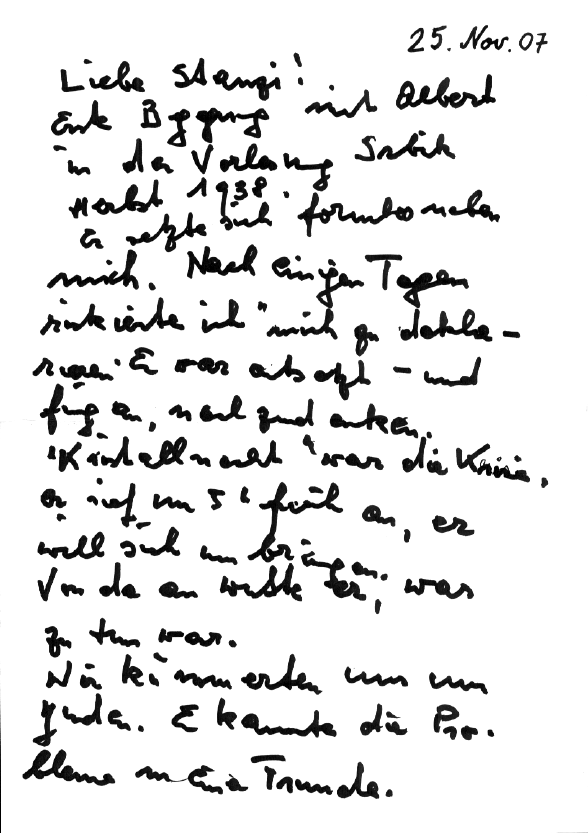 25. Nov. 07
Liebe Stanzi!
Erste Begegnung mit Albert
in der Vorlesung Srbik
Herbst 1938.
Er setzte sich formlos neben
mich. Nach einigen Tagen
riskierte ich "mich zu dekla-
rieren" Er war entsetzt - und
fing an, nachzudenken.
"Kristallnacht" war die Krise,
er rief um 5h früh an, er
will sich umbringen.
Von da an wußte er, was
zu tun war.
Wir kümmerten uns um
Juden. Er kannte die Pro-
bleme meiner Freunde.